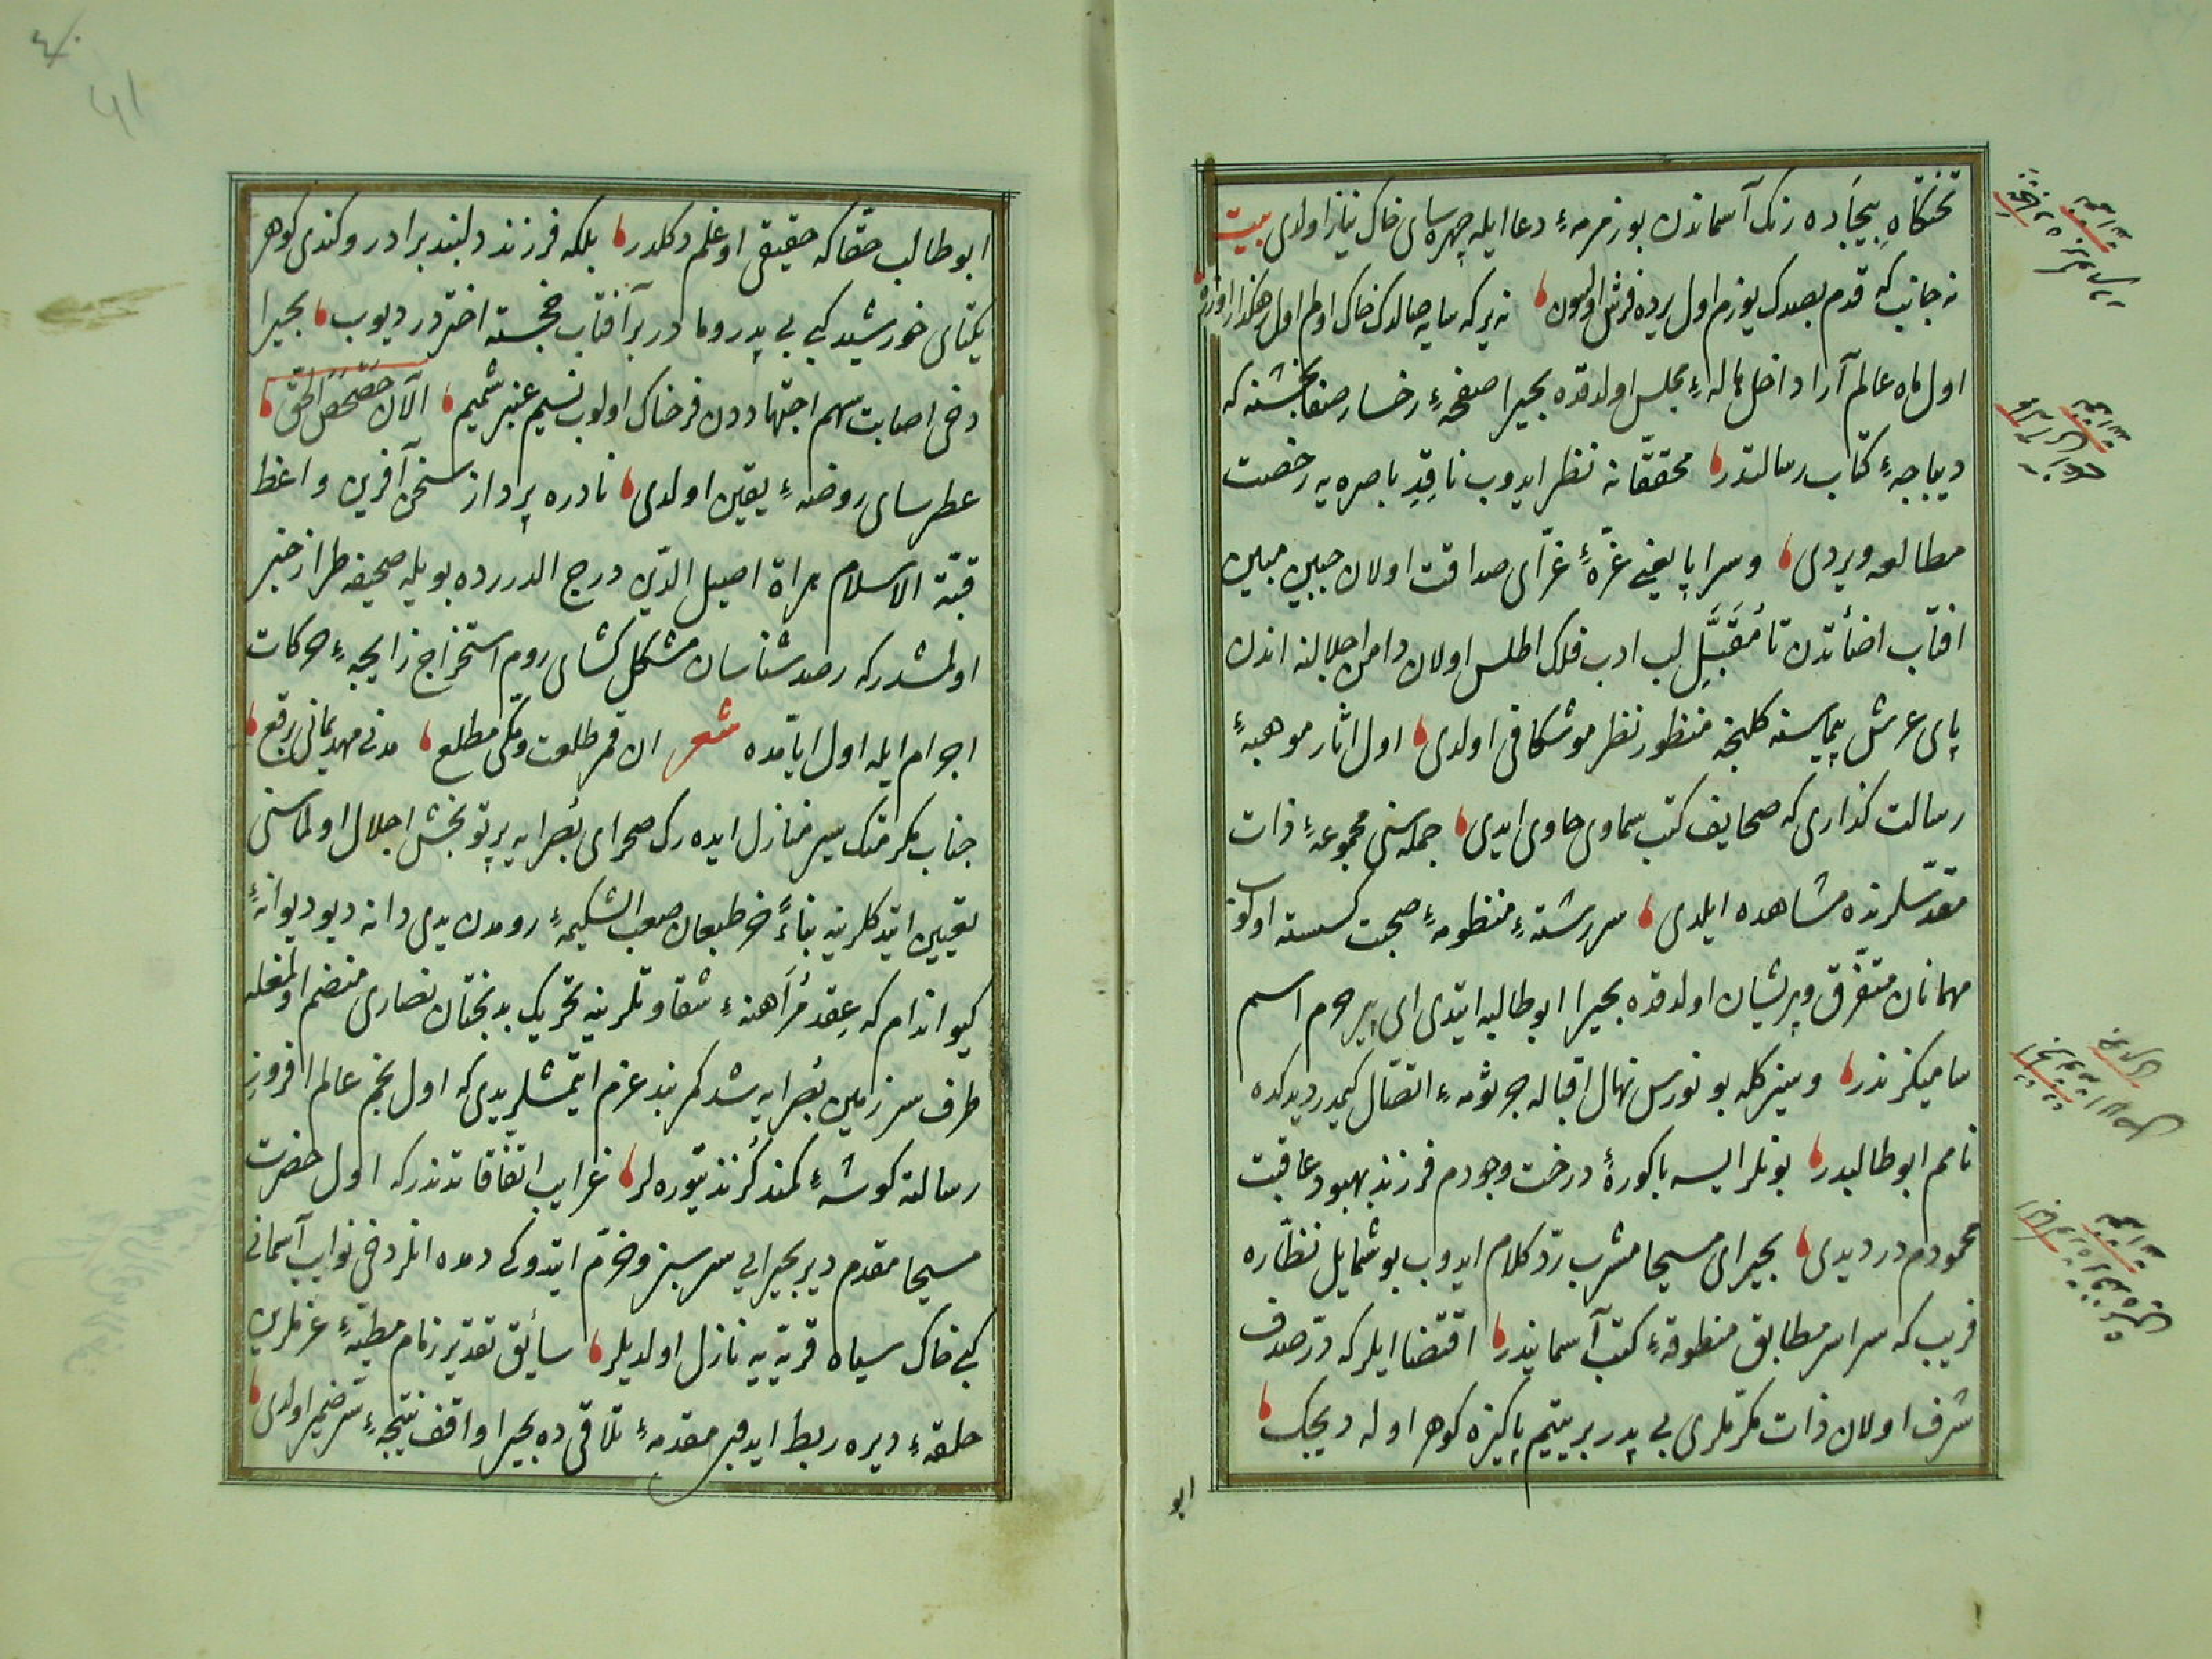 تختگاهِ بیجاده رنک آسماندن بو زمزمهٔ دعا ایله چهره‌سای خاک نیاز اولدی بیت
نه جانبه که قدم بصدک یوزم اول یرده فرش اولسون نه یرکه سایه صالدک خاک اولم اول رهگذار اوزره
اول ماه عالم آرا داخل هالهٔ مجلس اولدقده بحیرا صفحهٔ رخسار صفابخشنه که
دیباجهٔ کتاب رسالتدر محققانه نظر ایدوب ناقدِ باصره‌یه رخصت
مطالعه ویردی وسراپا یعنی غرّهٔ غرّای صداقت اولان جبین مبین
افتاب اضأتدن تا مُقَبَّلِ لب ادب فلک اطلس اولان دامن اجلالنه اندن
پای عرش پیماسنه کلنجه منظور نظر موشکافی اولدی اول اثار موهبهٔ
رسالت کذاری که صحایف کتب سماوی حاوی ایدی جمله‌سنی مجموعهٔ ذات
مقدّسلرنده مشاهده ایلدی سررشتهٔ منظومهٔ صحبت کسسته اولوب
مهمانان متفرّق وپریشان اولدقده بحیرا ابوطالبه ایتدی ای پیر حرم اسم
سامیکز ندر وسیزکله بو نورس نهال اقباله جرثومهٔ اتصّال کیمدر دیدکده
نامم ابوطالبدر بونلر ایسه باکورهٔ درخت وجودم فرزند بهبود عاقبت
محمودم در دیدی بحیرای مسیحا مشرب ردّ کلام ایدوب بو شمایل نظّاره
فریب که سراسر مطابق منطوقهٔ کتب آسمانیدر اقتضا ایلر که درّ صدف
شرف اولان ذات مکرّملری بی پدر بر یتیم پاکیزه کوهر اوله دیجک
ابو
ابوطالب حقّا که حقیقی اوغلم دکلدر بلکه فرزند دلبند برادر وکندی کوهر
یکتای خورشید کبی بی پدر ومادر بر آفتاب خجسته اختردر دیوب بحیرا
دخی اصابت سهم اجتهاددن فرحناک اولوب نسیم عنبر شمیم الآن حَصْحَصَ الحَقّ
عطرسای روضهٔ یقین اولدی نادره پرداز سخن آفرین واعظ
قبّة الاسلام هراة اصیل الدّین درج الدررده بویله صحیفه طراز خبر
اولمشدر که رصد شناسان مشکل کشای روم استخراج زایجهٔ حرکات
اجرام ایله اول ایّامده شعر ان قمر طلعت ومکّی مطلع مدنی مهد یمانی برقع
جناب مکرمتک سیر منازل ایده‌رک صحرای بُصرایه پرتو بخش اجلال اولماسنی
تعیین ایتدکلرینه بناءً خر طبعان صعب الشکیمهٔ رومدن یدی دانه دیو دیوانهٔ
کیو اندام که عِقد مُرَاهنهٔ شقاوتلرینه تحریک بدبختان نصاری منضم اولمغله
طرف سرزمین بُصرایه شد کمربند عزم ایتمشلریدی که اول نجم عالم افروزِ
رسالته کوشهٔ کمند کزند یتوره لر غرایب اتّفاقاتدندر که اول حضرت
مسیحا مقدم دیر بحیرایی سرسبز وخرّم ایتدوکی دمده انلر دخی نوایب آسمانی
کبی خاک سیاه قریه‌یه نازل اولدیلر سائق تقدیر زمام مطیّهٔ عزملرین
حلقهٔ دیره ربط ایدنجه مقدمهٔ تلاقی ده بحیرا واقف نتیجهٔ سرّ ضمیر اولدی